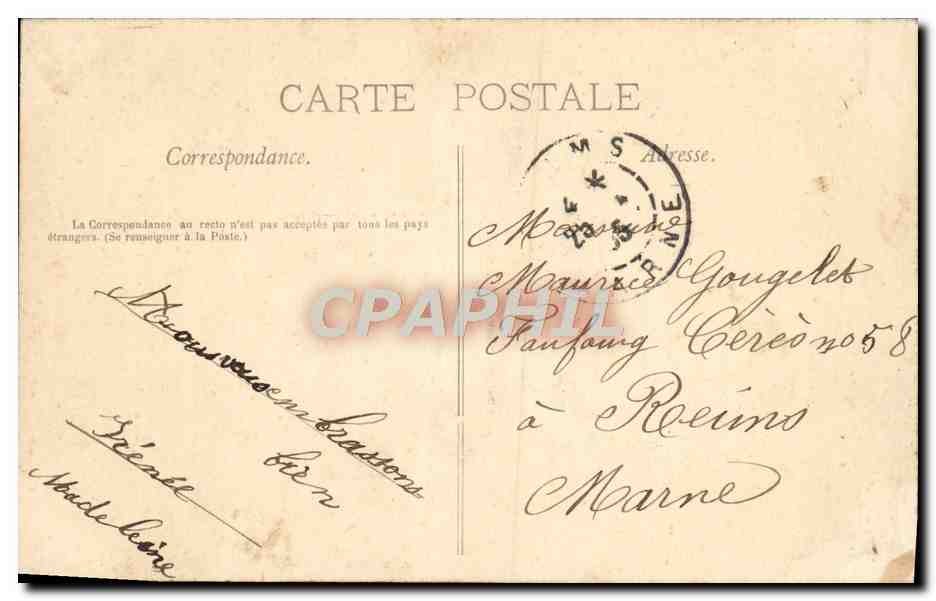 CARTE POSTALE
Correspondance.
Adresse.
La Correspondance au recto n'est pas acceptée par tous les pays
étrangers. (Se renseigner à la Poste.)
MS
RNE
23 4
CPAPHIL
Maurice Gougelet
Faufourg Cérès no 58
à Reims
Marne
Nous vous embrassons
bien
Irénée
Madeleine